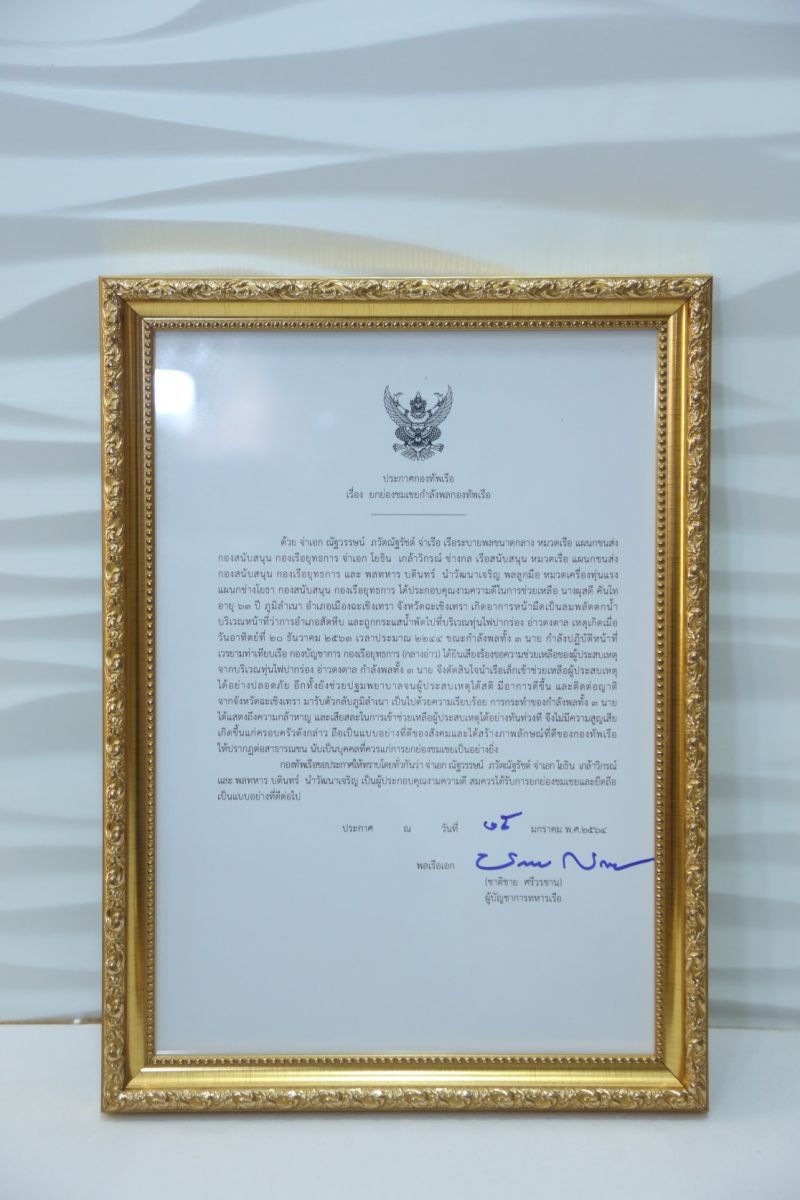 ประกาศกองทัพเรือ
เรื่อง ยกย่องชมเชยกำลังพลกองทัพเรือ
ด้วย จ่าเอก ณัฐวรรษน์ ภวัตณัฐรัชต์ จ่าเรือ เรือระบายพลขนาดกลาง หมวดเรือ แผนกขนส่ง
กองสนับสนุน กองเรือยุทธการ จ่าเอก โยธิน เกล้าวิกรณ์ ช่างกล เรือสนับสนุน หมวดเรือ แผนกขนส่ง
กองสนับสนุน กองเรือยุทธการ และ พลทหาร บดินทร์ นำวัฒนาเจริญ พลลูกมือ หมวดเครื่องทุ่นแรง
แผนกช่างโยธา กองสนับสนุน กองเรือยุทธการ ได้ประกอบคุณงามความดีในการช่วยเหลือ นางผุสดี คันโท
อายุ ๖๓ ปี ภูมิลำเนา อำเภอเมืองฉะเชิงเทรา จังหวัดฉะเชิงเทรา เกิดอาการหน้ามืดเป็นลมพลัดตกน้ำ
บริเวณหน้าที่ว่าการอำเภอสัตหีบ และถูกกระแสน้ำพัดไปที่บริเวณทุ่นไฟปากร่อง อ่าวดงตาล เหตุเกิดเมื่อ
วันอาทิตย์ที่ ๒๐ ธันวาคม ๒๕๖๓ เวลาประมาณ ๒๒๔๔ ขณะกำลังพลทั้ง ๓ นาย กำลังปฏิบัติหน้าที่
เวรยามท่าเทียบเรือ กองบัญชาการ กองเรือยุทธการ (กลางอ่าว) ได้ยินเสียงร้องขอความช่วยเหลือของผู้ประสบเหตุ
จากบริเวณทุ่นไฟปากร่อง อ่าวดงตาล กำลังพลทั้ง ๓ นาย จึงตัดสินใจนำเรือเล็กเข้าช่วยเหลือผู้ประสบเหตุ
ได้อย่างปลอดภัย อีกทั้งยังช่วยปฐมพยาบาลจนผู้ประสบเหตุได้สติ มีอาการดีขึ้น และติดต่อญาติ
จากจังหวัดฉะเชิงเทรา มารับตัวกลับภูมิลำเนา เป็นไปด้วยความเรียบร้อย การกระทำของกำลังพลทั้ง ๓ นาย
ได้แสดงถึงความกล้าหาญ และเสียสละในการเข้าช่วยเหลือผู้ประสบเหตุได้อย่างทันท่วงที จึงไม่มีความสูญเสีย
เกิดขึ้นแก่ครอบครัวดังกล่าว ถือเป็นแบบอย่างที่ดีของสังคมและได้สร้างภาพลักษณ์ที่ดีของกองทัพเรือ
ให้ปรากฏต่อสาธารณชน นับเป็นบุคคลที่ควรแก่การยกย่องชมเชยเป็นอย่างยิ่ง
กองทัพเรือขอประกาศให้ทราบโดยทั่วกันว่า จ่าเอก ณัฐวรรษน์ ภวัตณัฐรัชต์ จ่าเอก โยธิน เกล้าวิกรณ์
และ พลทหาร บดินทร์ นำวัฒนาเจริญ เป็นผู้ประกอบคุณงามความดี สมควรได้รับการยกย่องชมเชยและยึดถือ
เป็นแบบอย่างที่ดีต่อไป
ประกาศ ณ วันที่ มกราคม พ.ศ.๒๕๖๔
พลเรือเอก
(ชาติชาย ศรีวรขาน)
ผู้บัญชาการทหารเรือ